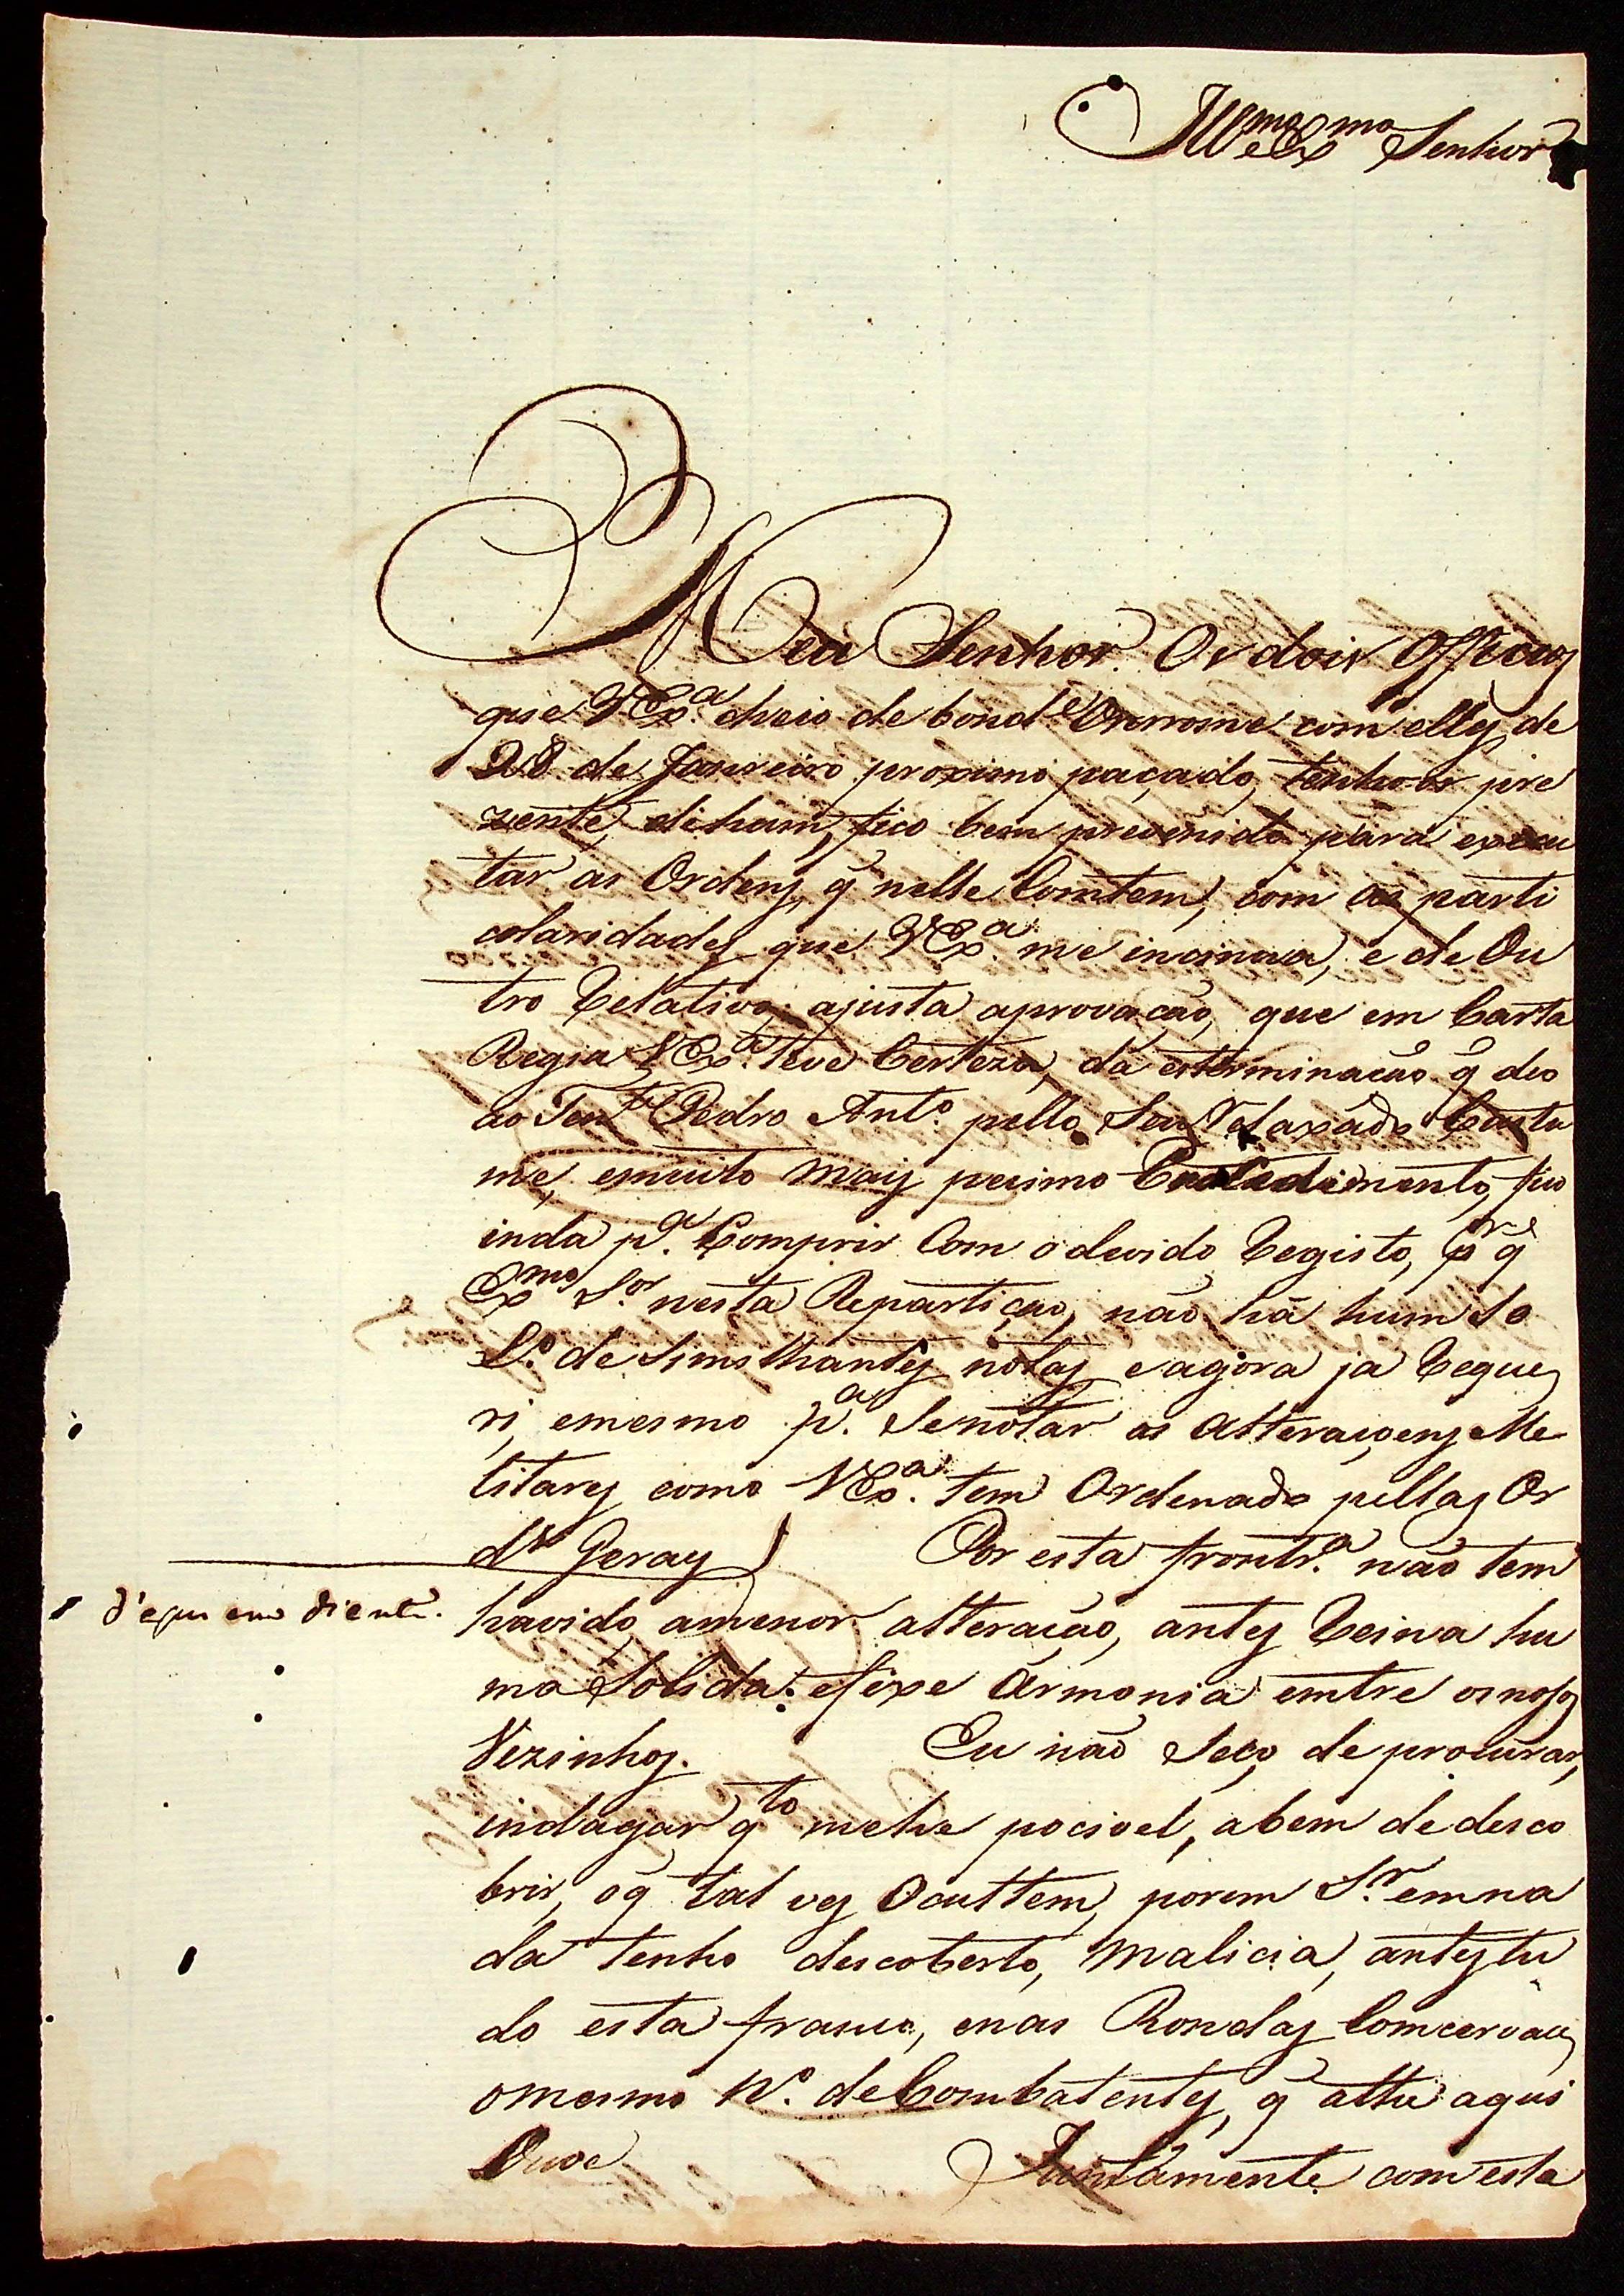 Illmo e Exmo Senhor
Meu Senhor. Os dois Officios
que VExa. cheio de bonde Onrrome com elles de
28 de Janeiro proximo paçado, tenho os pre
zente, di hum, fico bem prevenido para execu
tar as Ordens, q̃ nelle Comtem, com as parti
colaridades que VExa. me incinua, e de Ou
tro Relativo, ajusta aprovação, que em Carta
Regia VExa. teve Certeza, da esterminação q̃ deo
ao Tente Pedro Anto. pello Seu Relaxado Custu
me, emuito mais pecimo Procedimento, fico
inda pa. Comprir Com o devido Registo, pr q̃
Exmo Sor. nesta Repartição, não há hum So
Lo. de Simithantes notas e agora ja Reque
ri, emesmo pa. Senotar as Alteraçoens Me
litares como VExa. tem Ordenado pellas Or
ds Geraes Por esta frontra. não tem
d'expuem diente.
havido amenor alteração, antes Reina hu
ma Solida: efixe Armonia emtre os nosos
Vezinhos. Eu não Seço de procurar,
indagar qto mehe pocivel, abem de desco
brir, oq̃ tal ves Ocultem, porem Sr. emna
da tenho descoberto, Malicia, antes tu
do esta franco, enas Rondas Comcervão
omesmo No. de Combatentes, q̃ athe aqui
Ouve Juntamente com esta